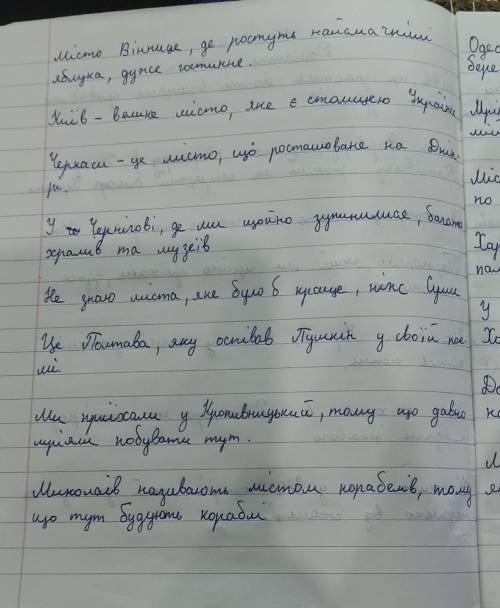 Місто Вінниця, де ростуть найсмачніші
яблука, дуже гостинне.
Київ - велике місто, яке є столицею України
Черкаси - це місто, що розташоване на Дніп-
рі.
У Чернігові, де ми щойно зупинилися, багато
храмів та музеїв
Не знаю міста, яке було б краще, ніж Суми
Це Полтава, яку оспівав Пушкін у своїй пое-
мі.
Ми приїхали у Кропивницький, тому що давно
мріяли побувати тут.
Миколаїв називають містом корабелів, тому
що тут будують кораблі
Одес
бере
Мік
по
Хар
пам
У
Хо
До
на